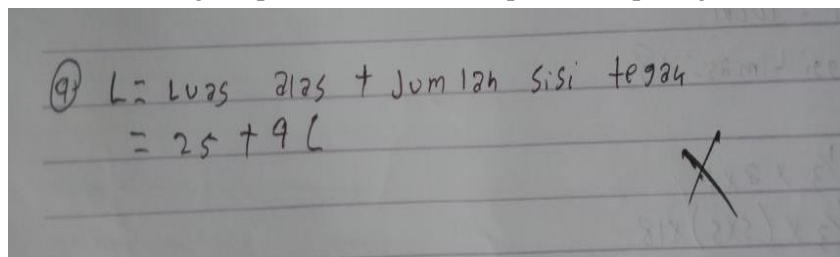 9) L = Luas alas + Jumlah sisi tegak
= 25 + 9 L